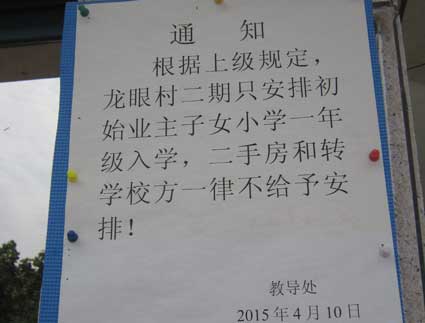 通 知
根据上级规定，
龙眼村二期只安排初
始业主子女小学一年
级入学，二手房和转
学校方一律不给予安
排！
教导处
2015年4月10日